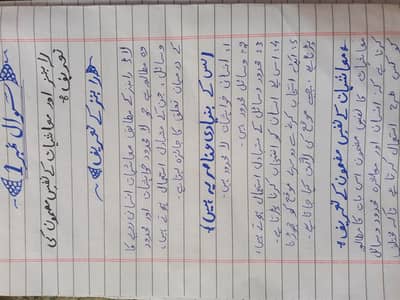 سوال نمبر 1
رابنز اور معاشیات کے نفس مضمون کی
تعریف؟
رابنز کے تعریف
لارڈ رابنز کے مطابق معاشیات انسان رویے کا
وہ مطالعہ ہے جو لا محدود خواہشات اور محدود
وسائل جن کے متبادل استعمال ہوتے ہیں،
کے درمیان تعلق کا جائزہ لیتا ہے۔
اس کے بنیادی عناصر یہ ہیں؛
۱۔ انسان خواہشات لا محدود ہیں۔
۲۔ وسائل محدود ہیں۔
۳۔ محدود وسائل کے متبادل استعمال ہوتے ہیں؛
۴۔ اس لیے انسان کو انتخاب کرنا پڑتا ہے۔
۵۔ ایک انتخاب کرنے سے دوسرے موقع کو چھوڑنا
پڑتا ہے، جسے موقع کی لاگت کہا جاتا ہے۔
معاشیات کے نفس مضمون کے تعریف؛
معاشیات کا نفس مضمون اس بات کا مطالعہ
کرنا ہے کہ انسان اور معاشرہ محدود وسائل
کو کس طرح استعمال کرتا ہے تاکہ